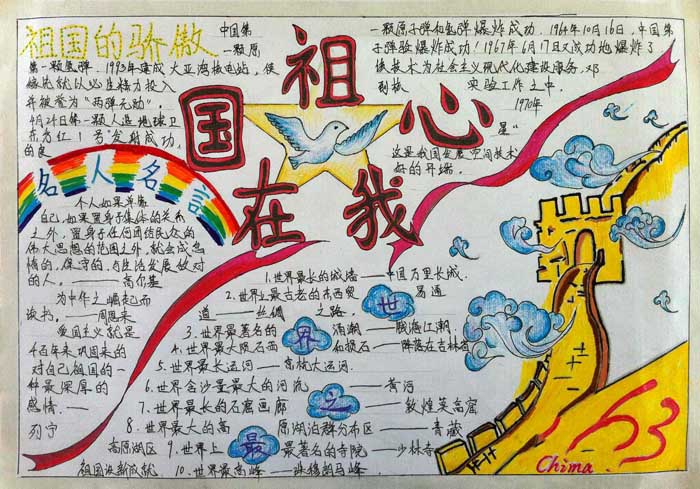 祖国的骄傲
中国第
一颗原
第一颗氢弹.1993年建成大亚湾核电站,使
并被誉为“两弹元勋”.
4月24日第一颗人造地球卫
东方红1号”发射成功,
的良
一颗原子弹和氢弹爆炸成功.1964年10月16日,中国第
子弹爆炸成功!1967年6月17日又成功地爆炸了
核技术为社会主义现代化建设服务.邓
实验工作之中.
1970年
星”
这是我国发展空间技术
好的开端.
祖
国
心
在
我
名人名言
个人如果单靠
自己,如果置身于集体的关系
之外,置身于任何团结民众的
伟大思想的范围之外,就会成怠
惰的、保守的、与生活发展敌对
的人.——高尔基
为中华之崛起而
读书.——周恩来
爱国主义就是
千百年来巩固来的
对自己祖国的一
种最深厚的
感情.——
列宁
1.世界最长的城墙——中国万里长城.
2.世界上最古老的东西贸易通
道——丝绸之路.
3.世界最著名的涌潮——钱塘江潮.
4.世界最大陨石雨和陨石——降落在吉林省
5.世界最长运河——京杭大运河.
6.世界含沙量最大的河流——黄河
7.世界最长的石窟画廊——敦煌莫高窟
8.世界最大的高原湖泊群分布区——青藏
高原湖区
9.世界上最著名的寺院——少林寺
祖国没新成就
10.世界最高峰——珠穆朗玛峰.
世
界
之
最
63
China